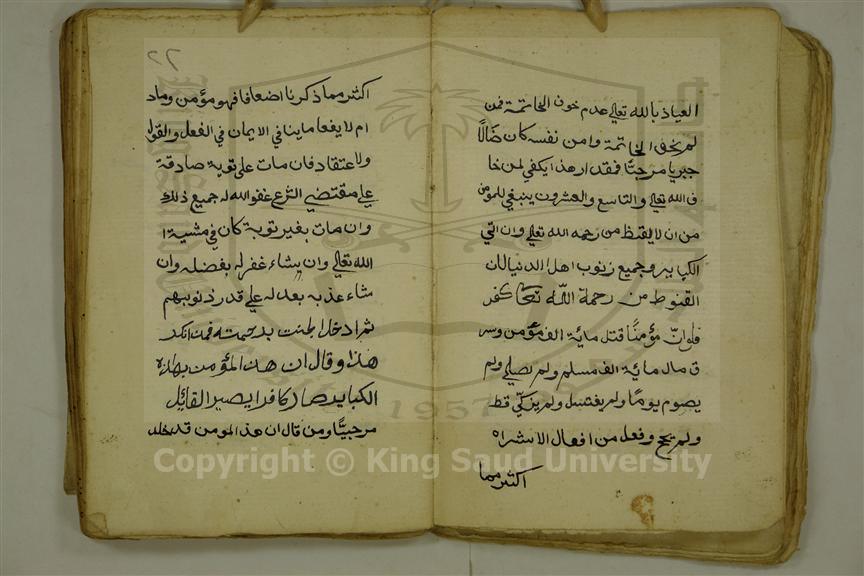 العياذ بالله تعالى عدم خوف الخاتمة فمن
لم يخف الخاتمة وامن نفسه كان ضالا
جبريا مرجئا فقد ار هذا يكفي لمن خا
ف الله تعالى والتاسع والعشرون ينبغي للمؤمن
من ان لا يقنط من رحمه الله تعالى وان اتي
الكبايرو جميع زنوب اهل الدنيالان
القنوط من رحمة الله تعالى كفر
فلوان مؤمنا قتل مائية الف مؤمن وسر
ق مال مائية الف مسلم ولم يصلي ولم
يصوم يوما ولم يغتسل ولم يزكي قط
ولم يحج وفعل من افعال الاشراه
اكثر مما
٢٢
اكثر مما ذكرنا اضعافا فهو مؤمن وماد
ام لا يفعل ماينا في الايمان في الفعل والقول
ولا عتقاد فان مات على توبة صادقة
على مقتضي الشرع غفر الله له جميع ذلك
وان مات بغير توبة كان في مشية ا
الله تعالى وان يشاء غفر له بفضله وان
شاء عذبه بعد له على قدر ذنوبهم
ثم ادخل الجنت برحمته فمن انكر
هذا وقال ان هذ المؤمن بهذه
الكباير صار كافرا يصير القائيل
مرجيا ومن قال ان هذ المومن قد خلد
Copyright © King Saud University
1957